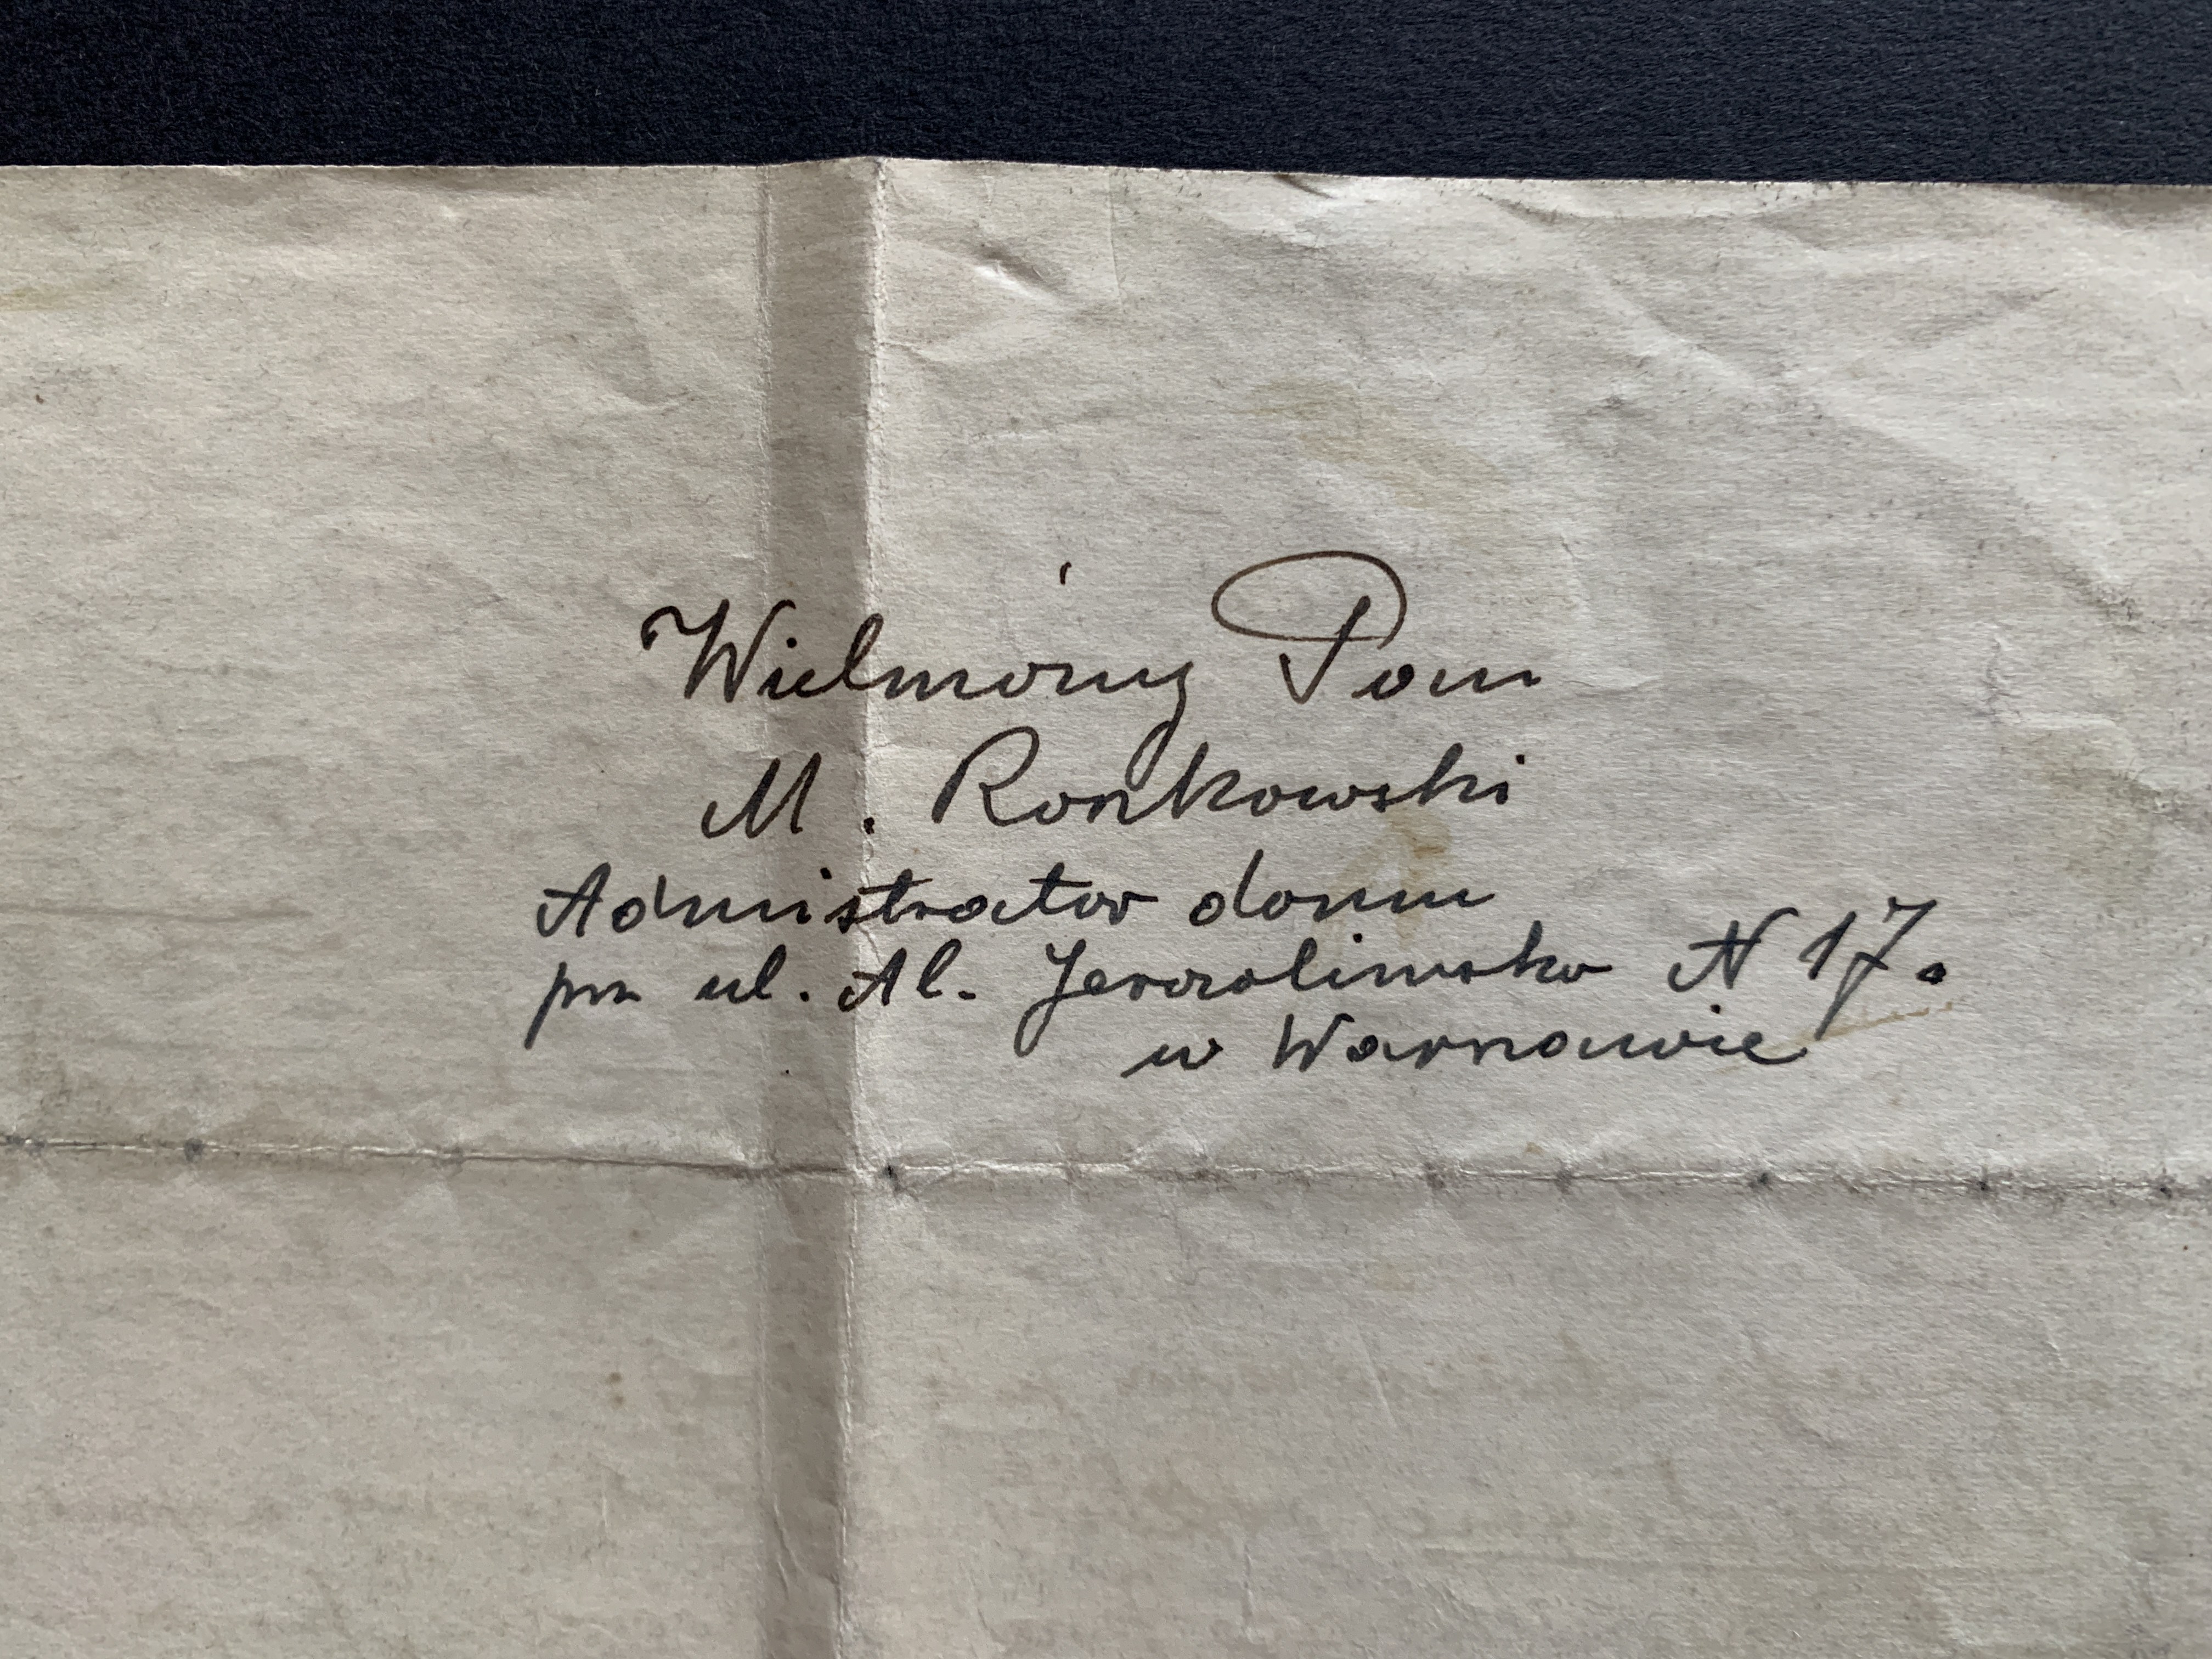 Wielmożny Pan
M. Ronkowski
Admistrator domu
prz ul. Al. Jerozolimska N 17.
w Warszawie